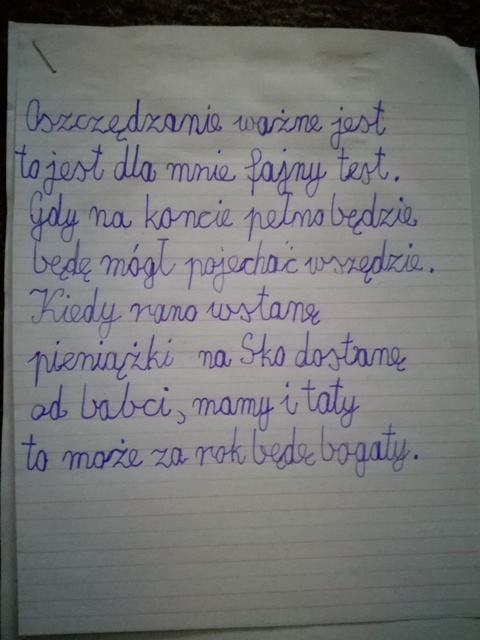 Oszczędzanie ważne jest
to jest dla mnie fajny test.
Gdy na koncie pełno będzie
będę mógł pojechać wszędzie.
Kiedy rano wstanę
pieniążki na Sko dostanę
od babci, mamy i taty
to może za rok będę bogaty.